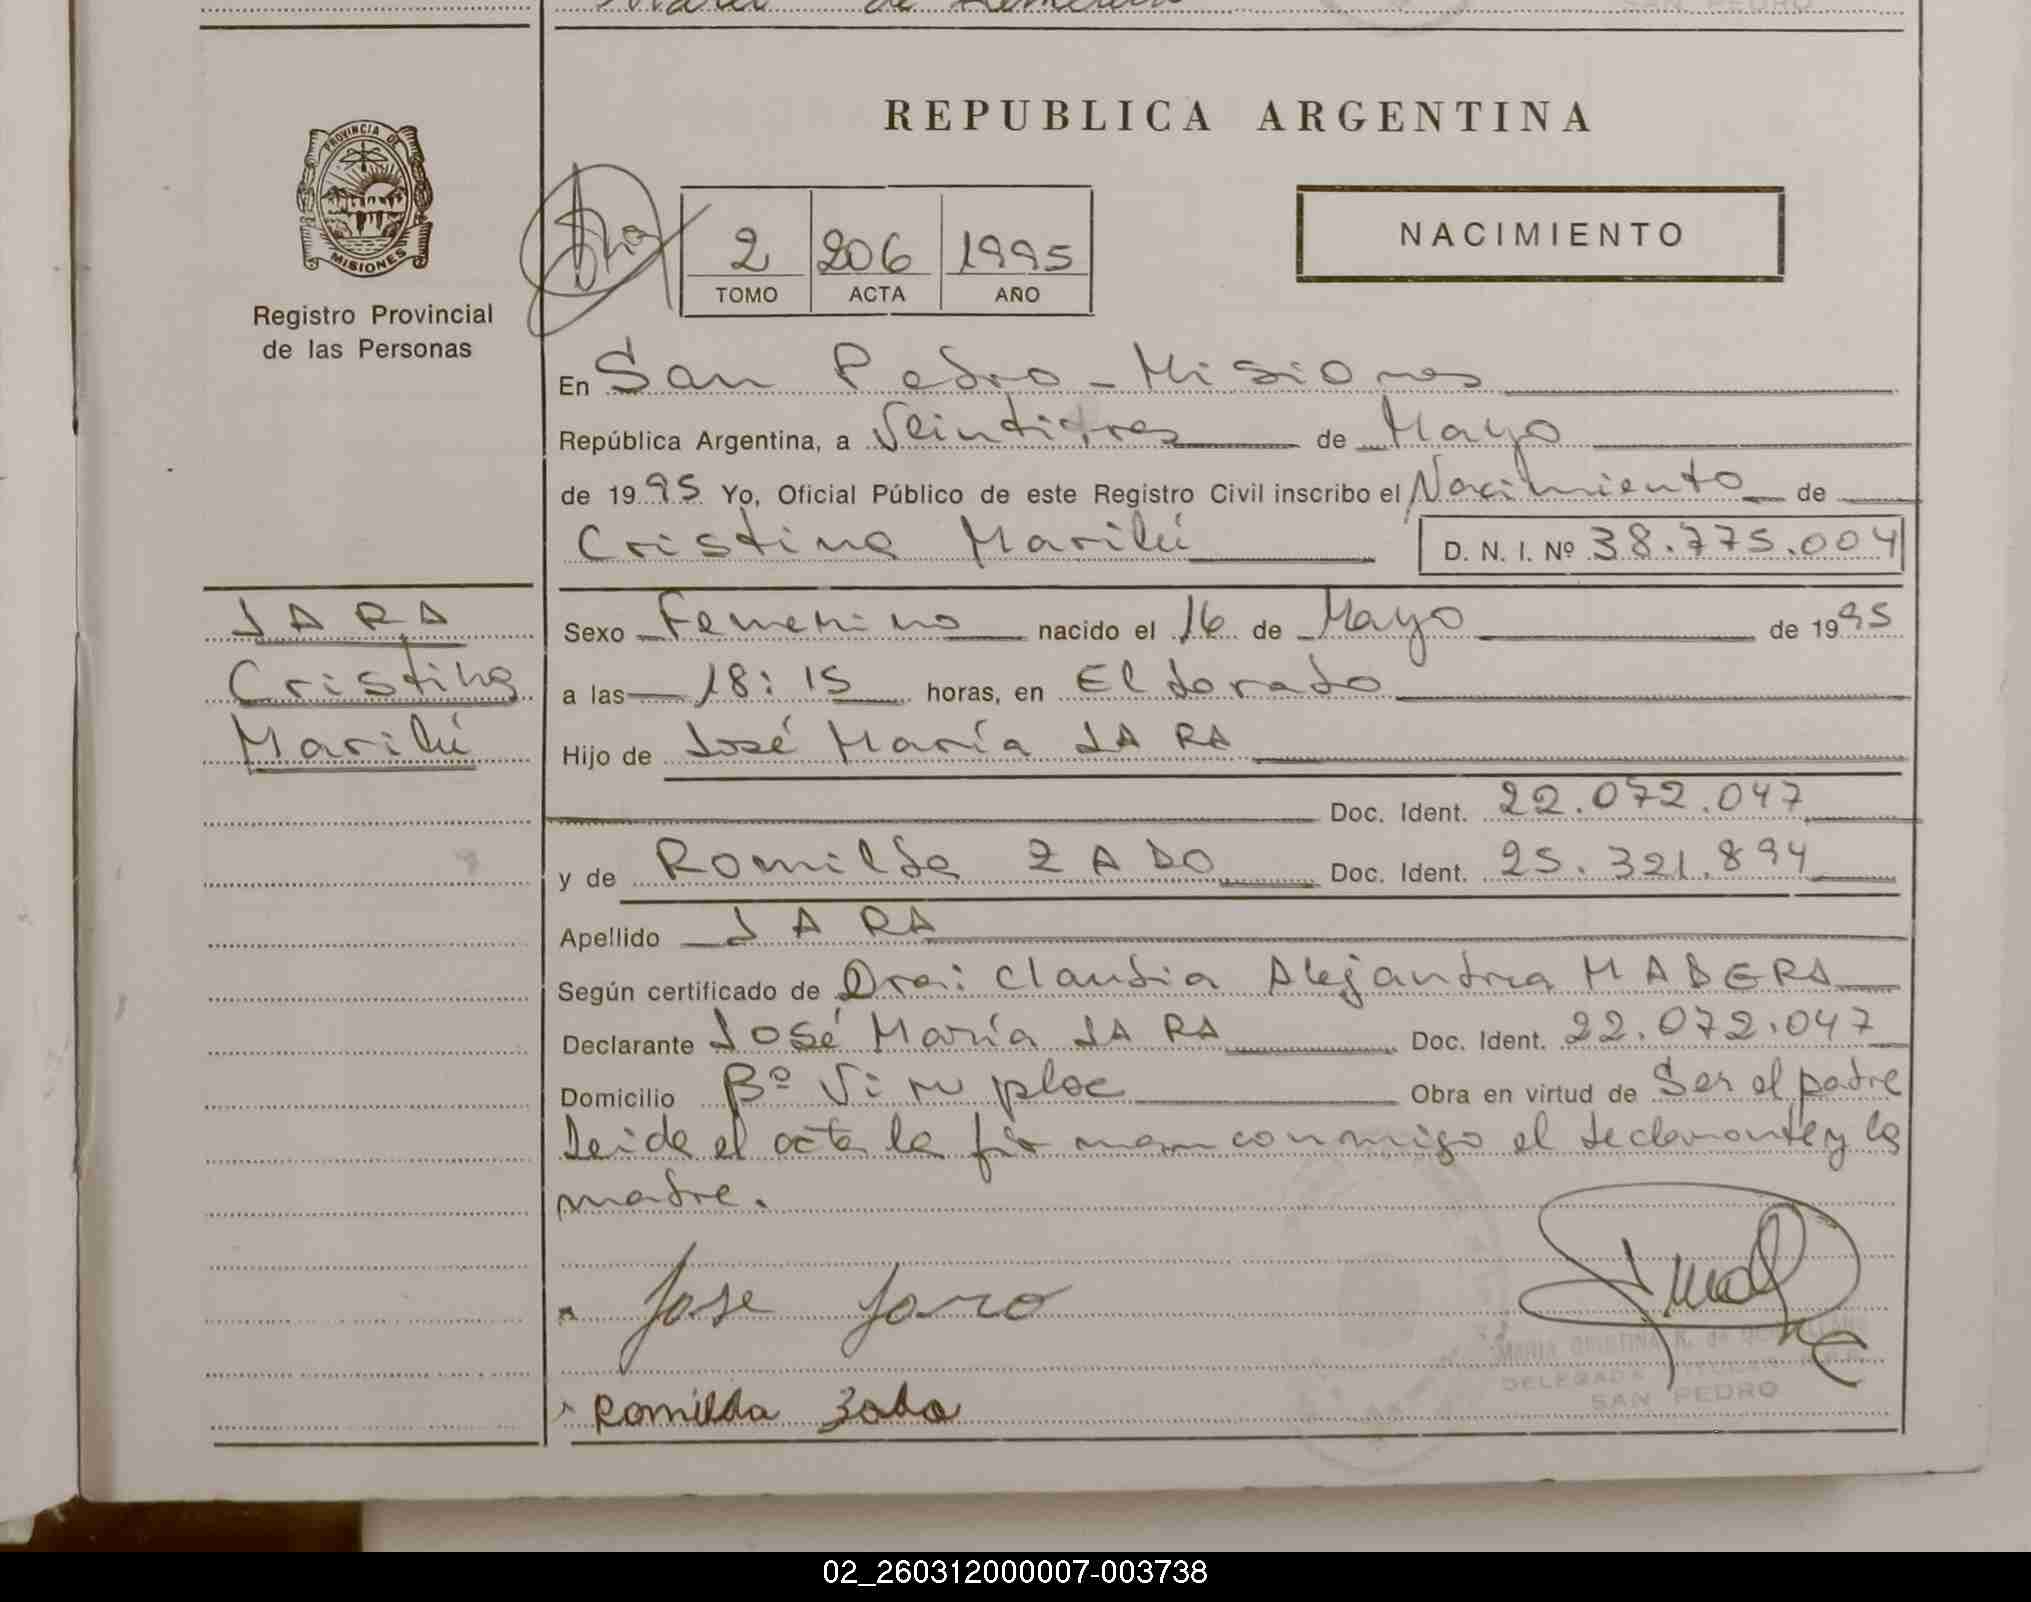 REPUBLICA ARGENTINA
PROVINCIA DE
MISIONES
Registro Provincial
de las Personas
2 206 1995
TOMO ACTA AÑO
NACIMIENTO
En San Pedro - Misiones
República Argentina, a Veintitres de Mayo
de 1995 Yo, Oficial Público de este Registro Civil inscribo el Nacimiento de
Cristina Marilú D. N. I. Nº 38.775.004
JARA
Cristina
Marilú
Sexo Femenino nacido el 16 de Mayo de 1995
a las 18:15 horas, en Eldorado
Hijo de José María JARA
Doc. Ident. 22.072.047
y de Romilda ZADO Doc. Ident. 25.321.894
Apellido JARA
Según certificado de Dra: Claudia Alejandra MADERA
Declarante José María JARA Doc. Ident. 22.072.047
Domicilio Bº Obra en virtud de Ser el padre
Leida el acta la firman conmigo el declarante y la
madre.
Jose Jara
MARIA CRISTINA R. de
DELEGADA TITULAR
SAN PEDRO
Romilda Zado
02_260312000007-003738